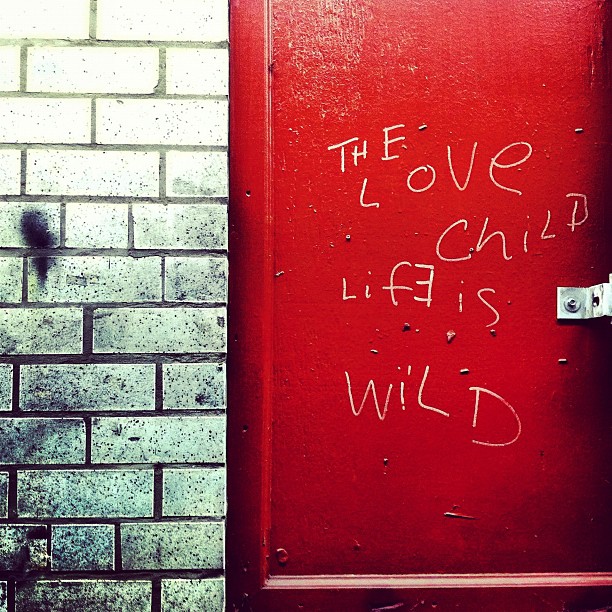 THE
LOVE
ChiLD
LifE is
WiLD